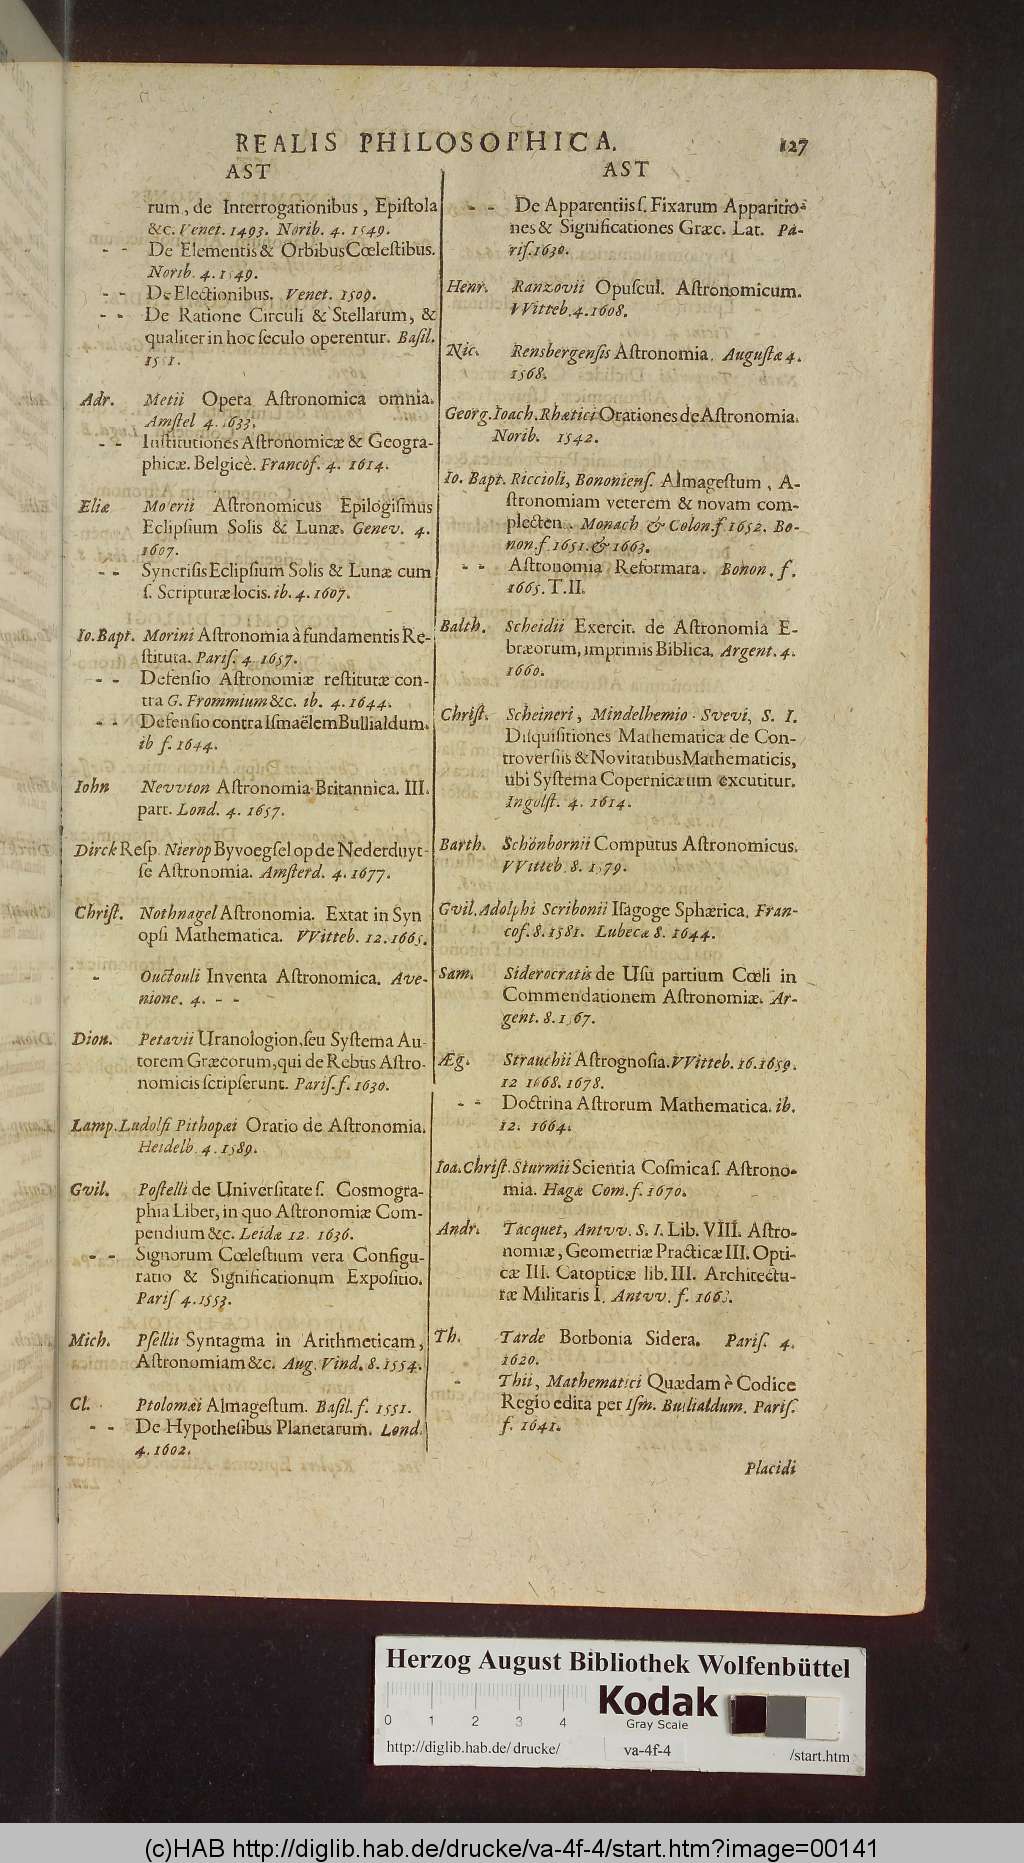 REALIS PHILOSOPHICA. 127
AST
rum, de Interrogationibus, Epiſtola
&c. Venet. 1493. Norib. 4. 1549.
- - De Elementis & Orbibus Cœleſtibus.
Norib. 4. 1549.
- - De Electionibus. Venet. 1509.
- - De Ratione Circuli & Stellarum, &
qualiter in hoc ſeculo operentur. Baſil.
1551.
Adr. Metii Opera Aſtronomica omnia.
Amſtel 4. 1633.
- - Inſtitutiones Aſtronomicæ & Geogra-
phicæ. Belgicè. Francof. 4. 1614.
Eliæ Moerii Aſtronomicus Epilogiſmus
Eclipſium Solis & Lunæ. Genev. 4.
1607.
- - Syncriſis Eclipſium Solis & Lunæ cum
ſ. Scripturæ locis. ib. 4. 1607.
Io. Bapt. Morini Aſtronomia à fundamentis Re-
ſtituta. Pariſ. 4. 1657.
- - Defenſio Aſtronomiæ reſtitutæ con-
tra G. Frommium &c. ib. 4. 1644.
- - Defenſio contra Iſmaëlem Bullialdum.
ib f. 1644.
Iohn Nevvton Aſtronomia Britannica. III.
part. Lond. 4. 1657.
Dirck Reſp. Nierop Byvoegſel op de Nederduyt-
ſe Aſtronomia. Amſterd. 4. 1677.
Chriſt. Nothnagel Aſtronomia. Extat in Syn
opſi Mathematica. VVitteb. 12. 1665.
- Ouctouli Inventa Aſtronomica. Ave-
nione. 4. - -
Dion. Petavii Uranologion, ſeu Syſtema Au-
torem Græcorum, qui de Rebus Aſtro-
nomicis ſcripſerunt. Pariſ. f. 1630.
Lamp. Ludolfi Pithopæi Oratio de Aſtronomia.
Heidelb. 4. 1589.
Gvil. Poſtelli de Univerſitate ſ. Coſmogra-
phia Liber, in quo Aſtronomiæ Com-
pendium &c. Leidæ 12. 1636.
- - Signorum Cœleſtium vera Configu-
ratio & Significationum Expoſitio.
Pariſ 4. 1553.
Mich. Pſellii Syntagma in Arithmeticam,
Aſtronomiam &c. Aug. Vind. 8. 1554.
Cl. Ptolomæi Almageſtum. Baſil. f. 1551.
- - De Hypotheſibus Planetarum. Lond.
4. 1602.
AST
- - De Apparentiis ſ. Fixarum Apparitio-
nes & Significationes Græc. Lat. Pa-
riſ. 1630.
Henr. Ranzovii Opuſcul. Aſtronomicum.
VVitteb. 4. 1608.
Nic. Rensbergenſis Aſtronomia. Auguſtæ 4.
1568.
Georg. Ioach. Rhætici Orationes de Aſtronomia.
Norib. 1542.
Io. Bapt. Riccioli, Bononienſ. Almageſtum, A-
ſtronomiam veterem & novam com-
plecten. Monach & Colon. f. 1652. Bo-
non. f. 1651. & 1663.
- - Aſtronomia Reformata. Bonon. f.
1665. T. II.
Balth. Scheidii Exercit. de Aſtronomia E-
bræorum, imprimis Biblica. Argent. 4.
1660.
Chriſt. Scheineri, Mindelhemio-Svevi, S. I.
Diſquiſitiones Mathematicæ de Con-
troverſiis & Novitatibus Mathematicis,
ubi Syſtema Copernicæum excutitur.
Ingolſt. 4. 1614.
Barth. Schönbornii Computus Aſtronomicus.
VVitteb. 8. 1579.
Gvil. Adolphi Scribonii Iſagoge Sphærica. Fran-
cof. 8. 1581. Lubecæ 8. 1644.
Sam. Siderocratis de Uſu partium Cœli in
Commendationem Aſtronomiæ. Ar-
gent. 8. 1567.
Æg. Strauchii Aſtrognoſia. VVitteb. 16. 1659.
12 1668. 1678.
- - Doctrina Aſtrorum Mathematica. ib.
12. 1664.
Ioa. Chriſt. Sturmii Scientia Coſmica ſ. Aſtrono-
mia. Hagæ Com. f. 1670.
Andr. Tacquet, Antvv. S. I. Lib. VIII. Aſtro-
nomiæ, Geometriæ Practicæ III. Opti-
cæ III. Catopticæ lib. III. Architectu-
ræ Militaris I. Antvv. f. 1668.
Th. Tarde Borbonia Sidera. Pariſ. 4.
1620.
- Thii, Mathematici Quædam è Codice
Regio edita per Iſm. Bullialdum. Pariſ.
f. 1641.
Placidi
Herzog August Bibliothek Wolfenbüttel
Kodak
Gray Scale
0 1 2 3 4
http://diglib.hab.de/drucke/ va-4f-4 /start.htm
(c)HAB http://diglib.hab.de/drucke/va-4f-4/start.htm?image=00141